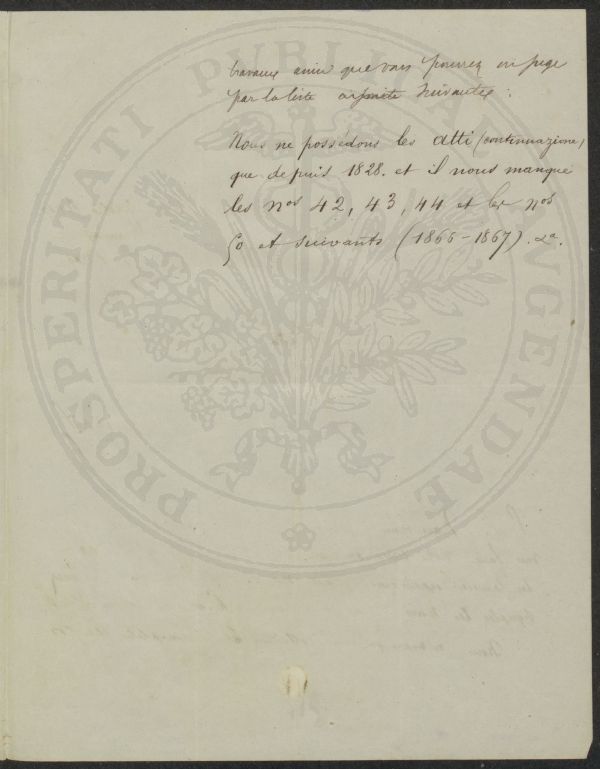 travaux ainsi que vous pourrez en juge
par la liste suivantes :
Nous ne possédons les atti (continuazione)
que depuis 1828. et il nous manque
les nos 42, 43, 44 et les nos
50 et suivants (1866-1867).
PROSPERITATI PUBLICAE AUGENDAE